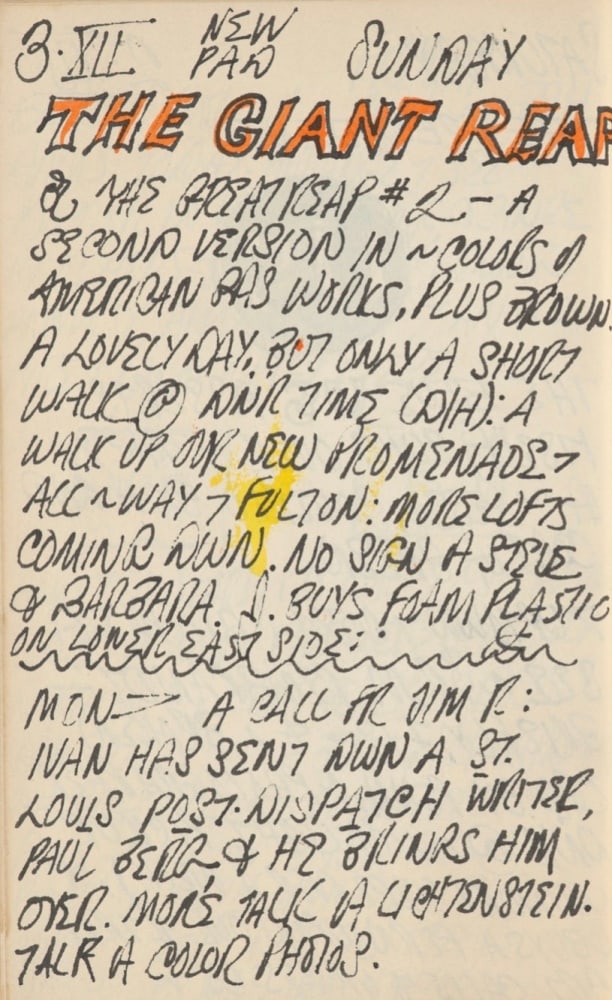 3·XII NEW PAD SUNDAY
THE GIANT REAP
& THE GREAT REAP #2 – A
SECOND VERSION IN ~ COLORS of
AMERICAN GAS WORKS, PLUS BROWN.
A LOVELY DAY, BUT ONLY A SHORT
WALK @ DNR TIME (D/H): A
WALK UP OUR NEW PROMENADE →
ALL ~ WAY → FULTON. MORE LOFTS
COMING DWN. NO SIGN A STEVE
& BARBARA. D. BUYS FOAM PLASTIC
ON LOWER EAST SIDE:
MON → A CALL FR JIM R:
IVAN HAS SENT DWN A ST.
LOUIS POST-DISPATCH WRITER,
PAUL BERG, & HE BRINGS HIM
OVER. MORE TALK A LICHTENSTEIN.
TALK A COLOR PHOTOS.